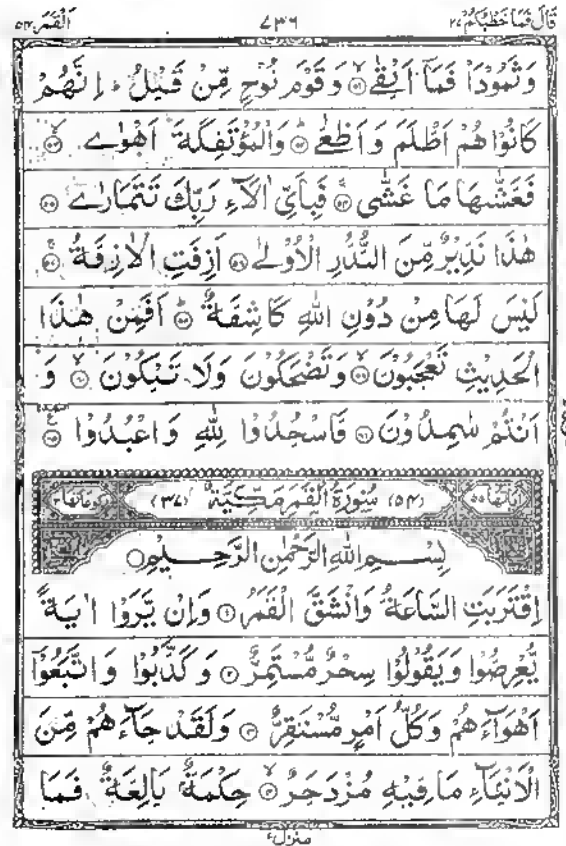 قَالَ فَمَا خَطْبُكُمْ ٢٧ ٧٣٦ اَلْقَمَر ٥٤
وَثَمُوْدَا۟ فَمَاۤ اَبْقٰى ۙ﴿۵۱﴾ وَقَوْمَ نُوْحٍ مِّنْ قَبْلُ ؕ اِنَّهُمْ
كَانُوْا هُمْ اَظْلَمَ وَاَطْغٰى ؕ﴿۵۲﴾ وَالْمُؤْتَفِكَةَ اَهْوٰى ۙ﴿۵۳﴾
فَغَشّٰىهَا مَا غَشّٰى ۚ﴿۵۴﴾ فَبِاَىِّ اٰلَآءِ رَبِّكَ تَتَمَارٰى ﴿۵۵﴾
هٰذَا نَذِيْرٌ مِّنَ النُّذُرِ الْاُوْلٰى ﴿۵۶﴾ اَزِفَتِ الْاٰزِفَةُ ۚ﴿۵۷﴾
لَيْسَ لَهَا مِنْ دُوْنِ اللّٰهِ كَاشِفَةٌ ؕ﴿۵۸﴾ اَفَمِنْ هٰذَا
الْحَدِيْثِ تَعْجَبُوْنَ ۙ﴿۵۹﴾ وَتَضْحَكُوْنَ وَلَا تَبْكُوْنَ ۙ﴿۶۰﴾ وَ
اَنْتُمْ سٰمِدُوْنَ ﴿۶۱﴾ فَاسْجُدُوْا لِلّٰهِ وَاعْبُدُوْا ﴿۶۲﴾
اٰيَاتُهَا ٥٥ (٥٤) سُوْرَةُ الْقَمَرِ مَكِّيَّةٌ (٣٧) رُكُوْعَاتُهَا ٣
بِسْمِ اللّٰهِ الرَّحْمٰنِ الرَّحِيْمِ
اِقْتَرَبَتِ السَّاعَةُ وَانْشَقَّ الْقَمَرُ ﴿۱﴾ وَاِنْ يَّرَوْا اٰيَةً
يُّعْرِضُوْا وَيَقُوْلُوْا سِحْرٌ مُّسْتَمِرٌّ ﴿۲﴾ وَكَذَّبُوْا وَاتَّبَعُوْۤا
اَهْوَآءَهُمْ وَكُلُّ اَمْرٍ مُّسْتَقِرٌّ ﴿۳﴾ وَلَقَدْ جَآءَهُمْ مِّنَ
الْاَنْۢبَآءِ مَا فِيْهِ مُزْدَجَرٌ ۙ﴿۴﴾ حِكْمَةٌ ۢ بَالِغَةٌ فَمَا
منزل